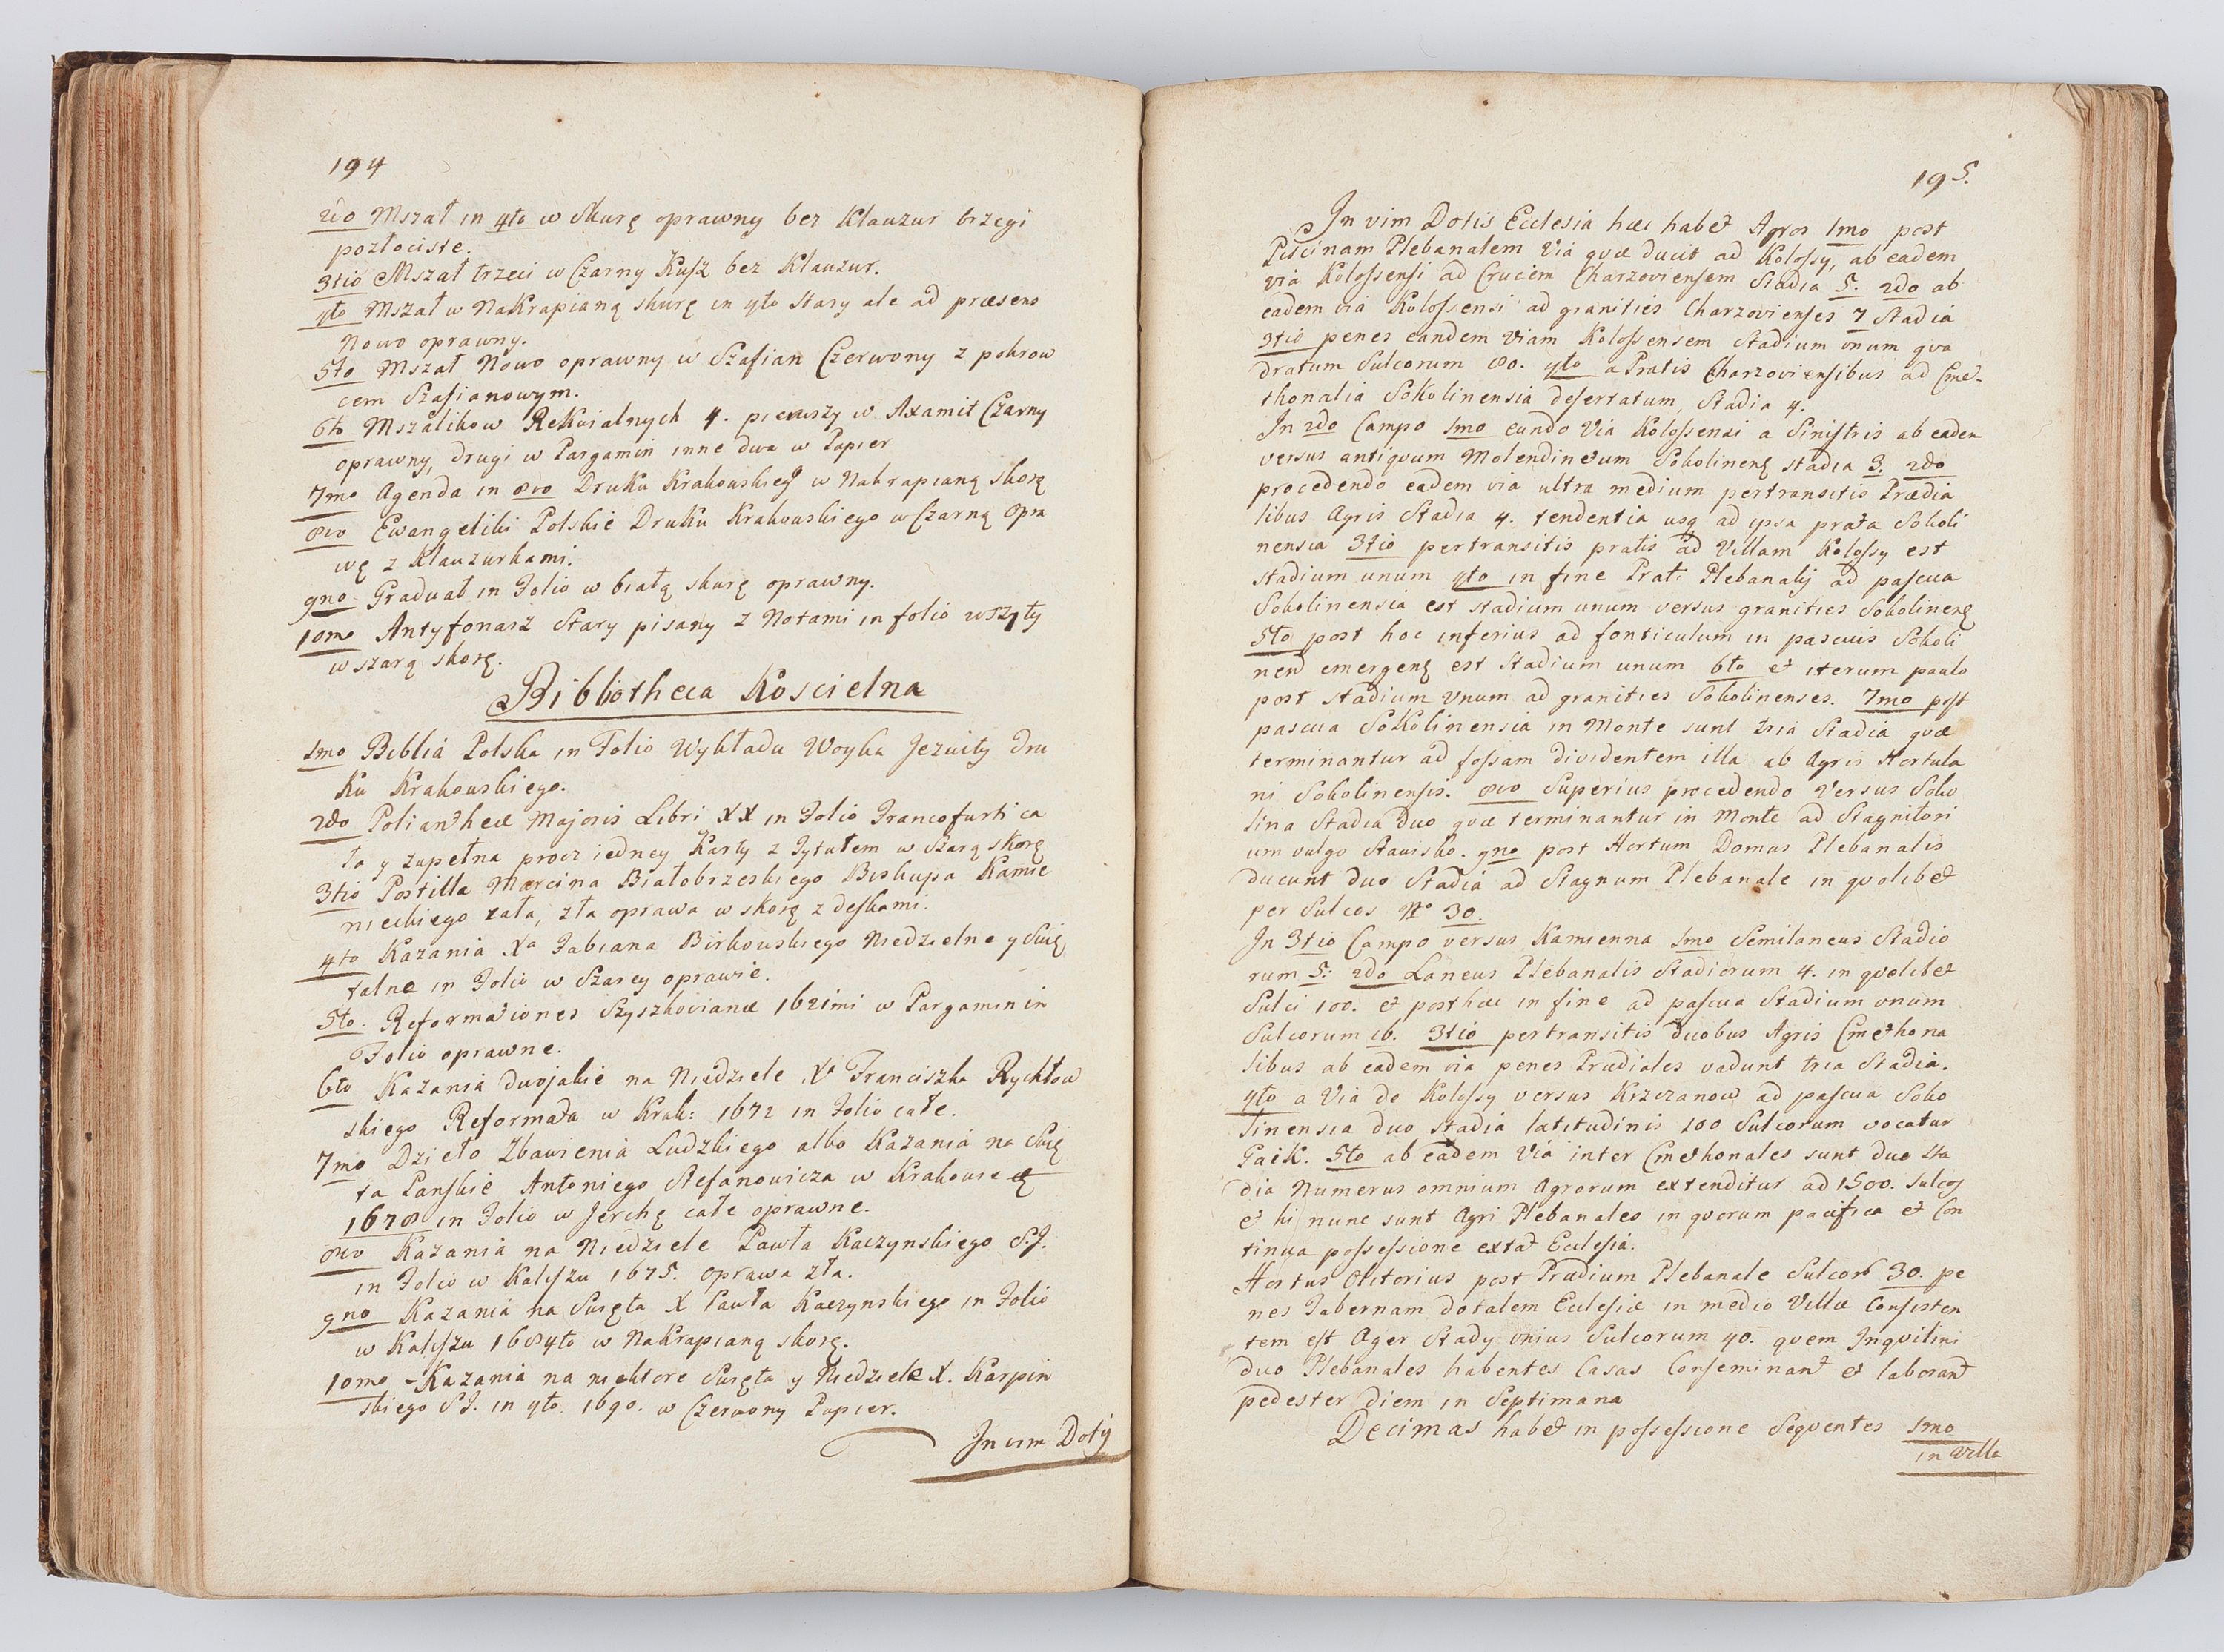 194
2do Mszał in 4to w Skurę oprawny bez Klauzur brzegi
pozłociste.
3tio Mszał trzeci w Czarny Kusz bez Klauzur.
4to Mszał w Nakrapianą skurę in 4to Stary ale ad præsens
Nowo oprawny.
5to Mszał Nowo oprawny w Szafian Czerwony z pokrow
cem Szafianowym.
6to Mszalikow Rekwialnych 4. pierwszy w Axamit Czarny
oprawny, drugi w Pargamin inne dwa w Papier
7mo Agenda in 8vo Druku Krakowskieg° w Nakrapianą skorę
8vo Ewangeliki Polskie Druku Krakowskiego w Czarną Opra
wę z Klauzurkami.
9no Graduał in Folio w białą skurę oprawny.
10mo Antyfonarz Stary pisany z Notami in folio wszyty
w szarą skorę.
Bibliotheca Koscielna
1mo Biblia Polska in Folio Wykładu Woyka Jezuity Dru
ku Krakowskiego.
2do Poliantheæ Majoris Libri XX in Folio Francofurti ca
ła y zupełna procz iedney Karty z Tytułem w Szarą skorę
3tio Postilla Marcina Białobrzeskiego Biskupa Kamie
nieckiego cała, zła oprawa w skorę z deskami.
4to Kazania Xa Fabiana Birkowskiego Niedzielne y Swię
talne in Folio w Szarey oprawie.
5to. Reformationes Szyszkovianæ 1621mi w Pargamin in
Folio oprawne.
6to Kazania dwojakie na Niedziele Xa Franciszka Rychłow
skiego Reformata w Krak: 1672 in Folio całe.
7mo Dzieło Zbawienia Ludzkiego albo Kazania na Swię
ta Panskie Antoniego Stefanowicza w Krakowie
1678 in Folio w Jerchę całe oprawne.
8vo Kazania na Niedziele Pawła Kaczynskiego S.J.
in Folio w Kaliszu 1675. oprawa zła.
9no Kazania na Swięta X Pawła Kaczynskiego in Folio
w Kaliszu 1684to w Nakrapianą skorę.
10mo - Kazania na niektore Swięta y Niedziele X. Karpin
skiego S.J. in 4to. 1690. w Czerwony Papier.
In vim Dotis
195.
In vim Dotis Ecclesia hæc habet Agros 1mo post
Piscinam Plebanalem Via quæ ducit ad Kolossy, ab eadem
via Kolossensi ad Crucem Charzoviensem Stadia 5. 2do ab
eadem via Kolossensi ad granities Charzovienses 7 Stadia
3tio penes eandem Viam Kolossensem Stadium unum qva
dratum Sulcorum 80. 4to a Pratis Charzoviensibus ad Cme-
thonalia Sokolinensia desertatum, Stadia 4.
In 2do Campo 1mo eundo Via Kolossensi a Sinistris ab eadem
versus antiquum Molendinum Sokolinens stadia 3. 2do
procedendo eadem via ultra medium pertransitis Prædia
libus Agris Stadia 4. tendentia usq ad ipsa prata Sokoli
nensia 3tio pertransitis pratis ad Villam Kolossy est
stadium unum 4to in fine Prati Plebanalis ad pascua
Sokolinensia est stadium unum versus granities Sokolinens
5to post hoc inferius ad fonticulum in pascuis Sokoli
nens emergens est Stadium unum 6to et iterum paulo
post stadium Unum ad granities Sokolinenses. 7mo post
pascua Sokolinensia in Monte sunt tria Stadia quæ
terminantur ad fossam dividentem illa ab Agris Hortula
ni Sokolinensis. 8vo Superius procedendo Versus Soko
lina Stadia duo quæ terminantur in Monte ad Stagnitori
um vulgo Stawisko. 9no post Hortum Domus Plebanalis
ducunt duo Stadia ad Stagnum Plebanale in quolibet
per Sulcos N° 30.
In 3tio Campo versus Kamienna 1mo Semilaneus Stadio
rum 5: 2do Laneus Plebanalis Stadiorum 4. in quolibet
Sulci 100. et post hæc in fine ad pascua Stadium unum
Sulcorum 16. 3tio pertransitis duobus Agris Cmethona
libus ab eadem via penes Prædiales vadunt tria Stadia.
4to a Via de Kolossy versus Krzczanow ad pascua Soko
linensia duo stadia latitudinis 100 Sulcorum vocatur
Gaik. 5to ab eadem Via inter Cmethonales sunt duo Sta
dia Numerus omnium Agrorum extenditur ad 1500. Sulcos
et hi nunc sunt Agri Plebanales in quorum pacifica et Con
tinua possessione extat Ecclesia.
Hortus Olitorius post Prædium Plebanale Sulcor 30. pe
nes Tabernam dotalem Ecclesiæ in medio Villæ Consisten
tem est Ager Stady unius Sulcorum 40. quem Inquilini
duo Plebanales habentes Casas Conseminant et laborant
pedester diem in Septimana
Decimas habet in possessione Sequentes 1mo
in Villa